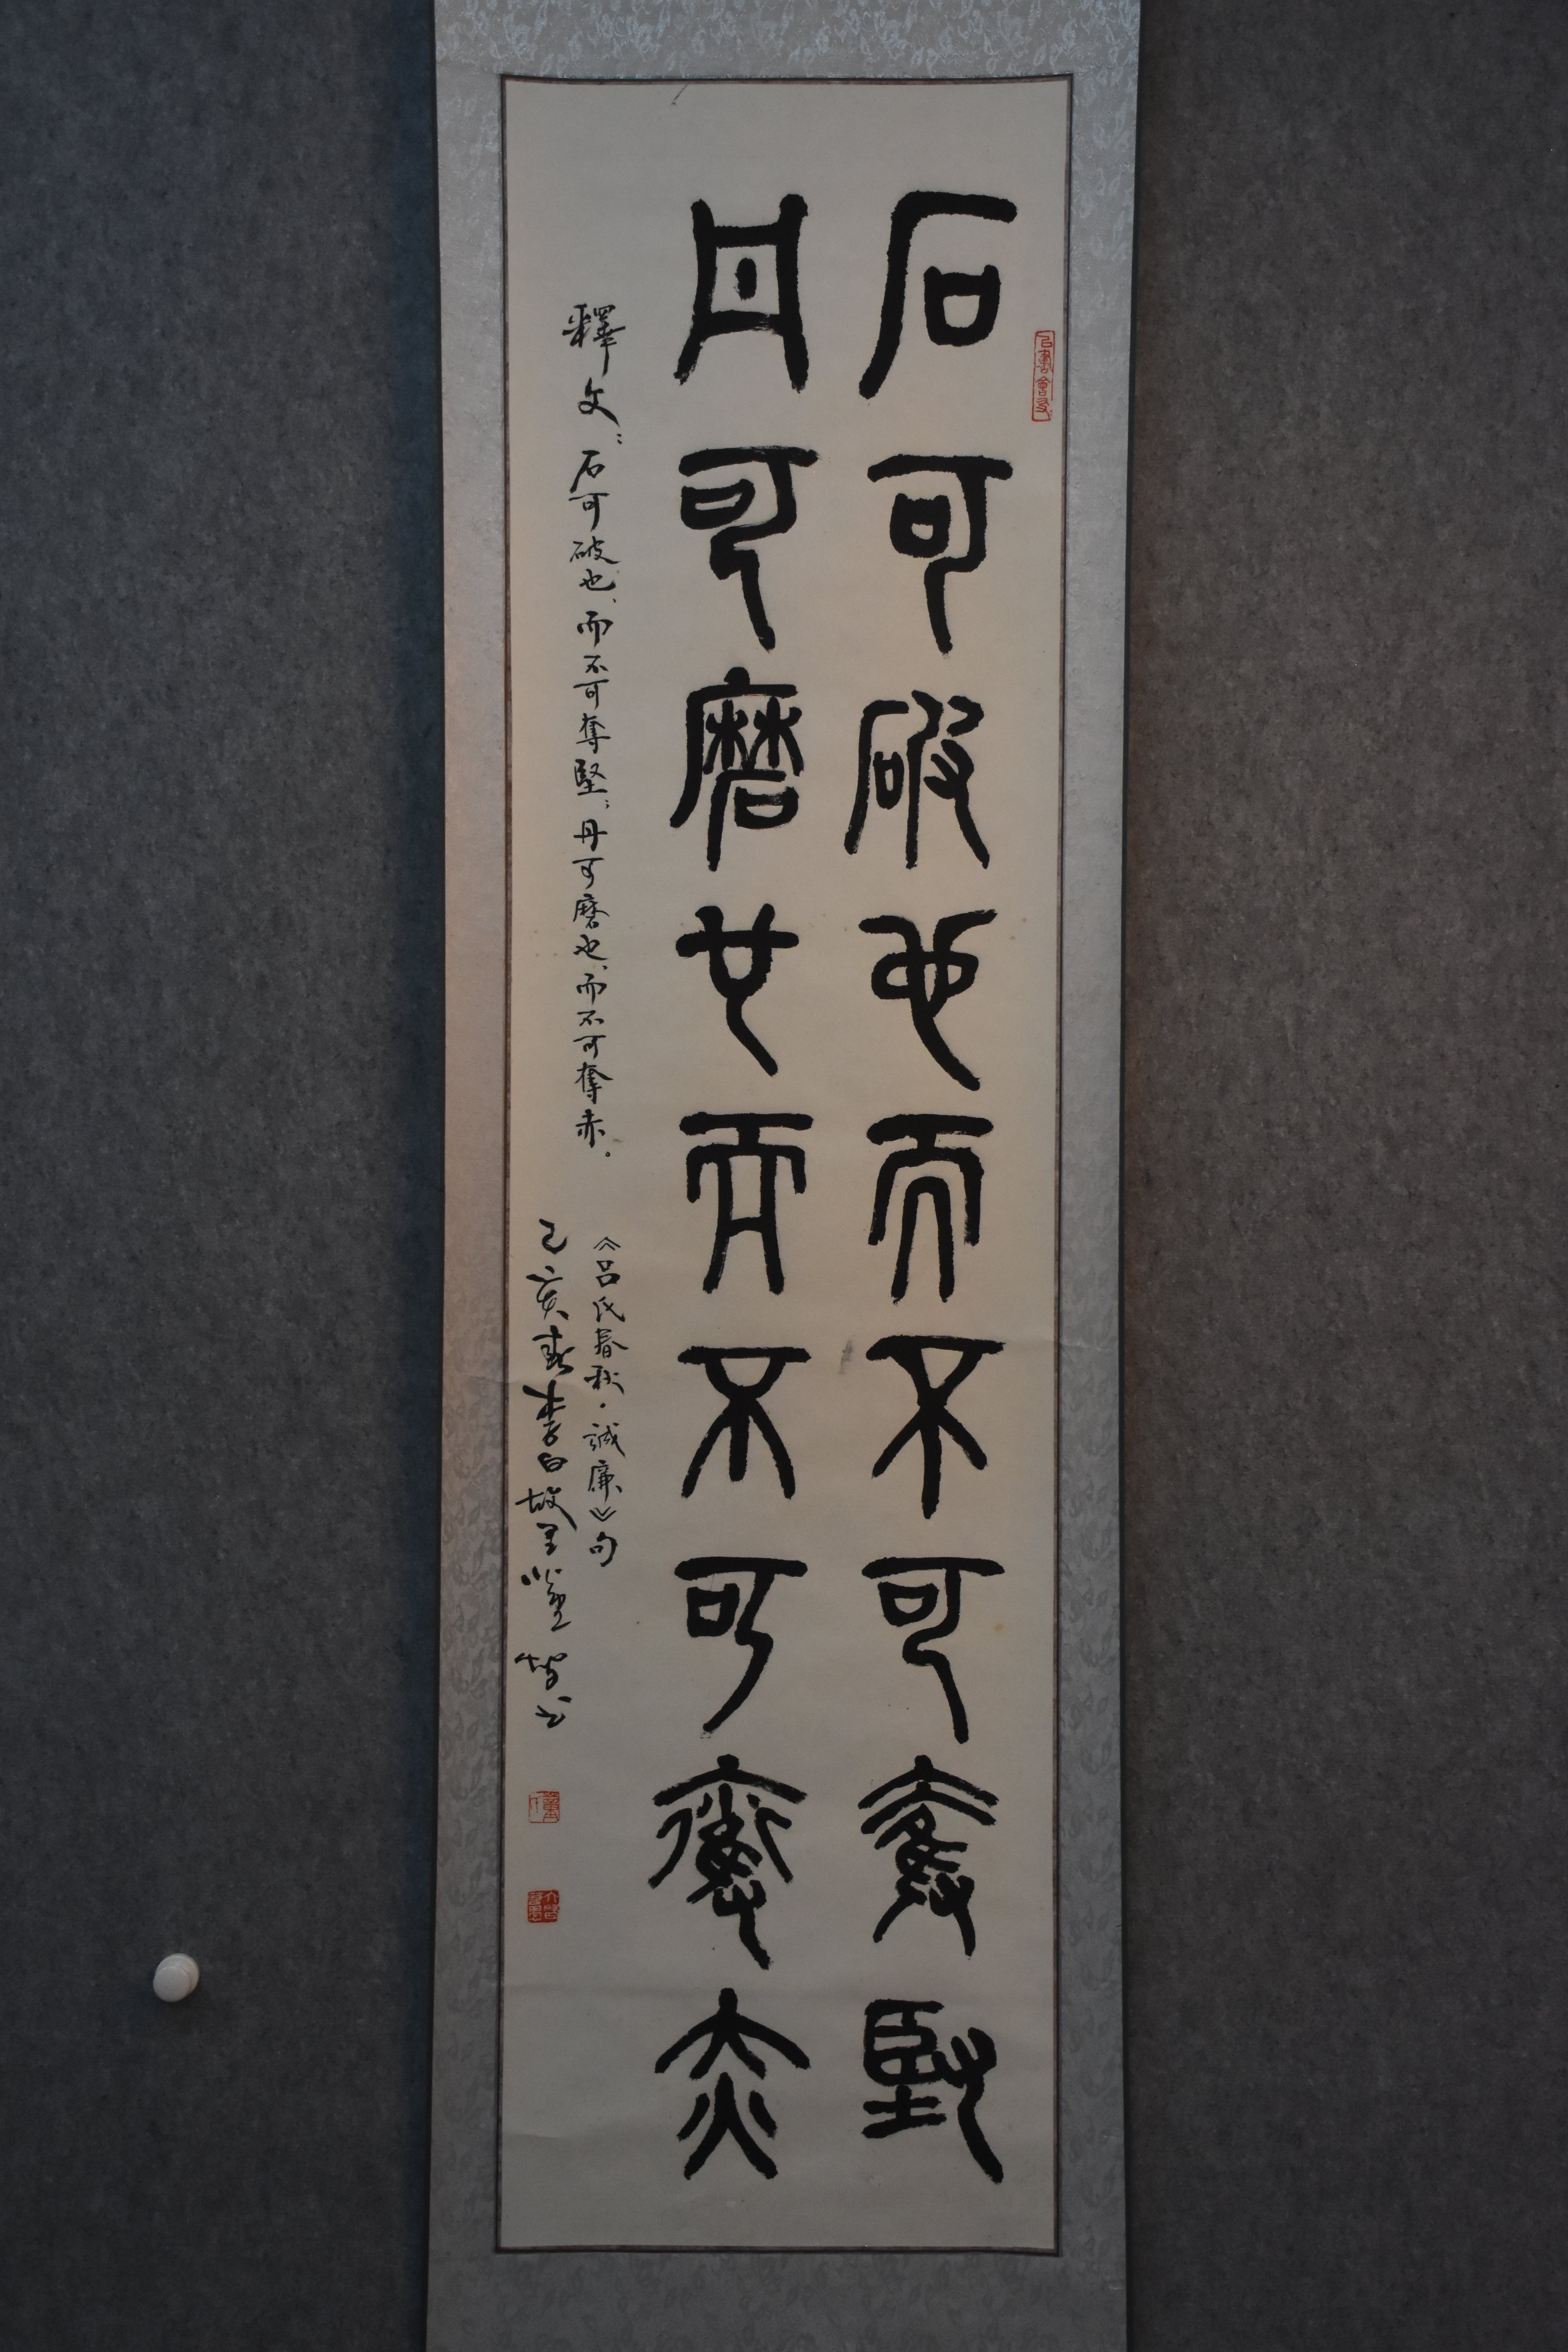 石可破也而不可奪堅
丹可磨也而不可奪赤
釋文：石可破也、而不可奪堅；丹可磨也、而不可奪赤。
《吕氏春秋·誠廉》句
己亥春李白故里